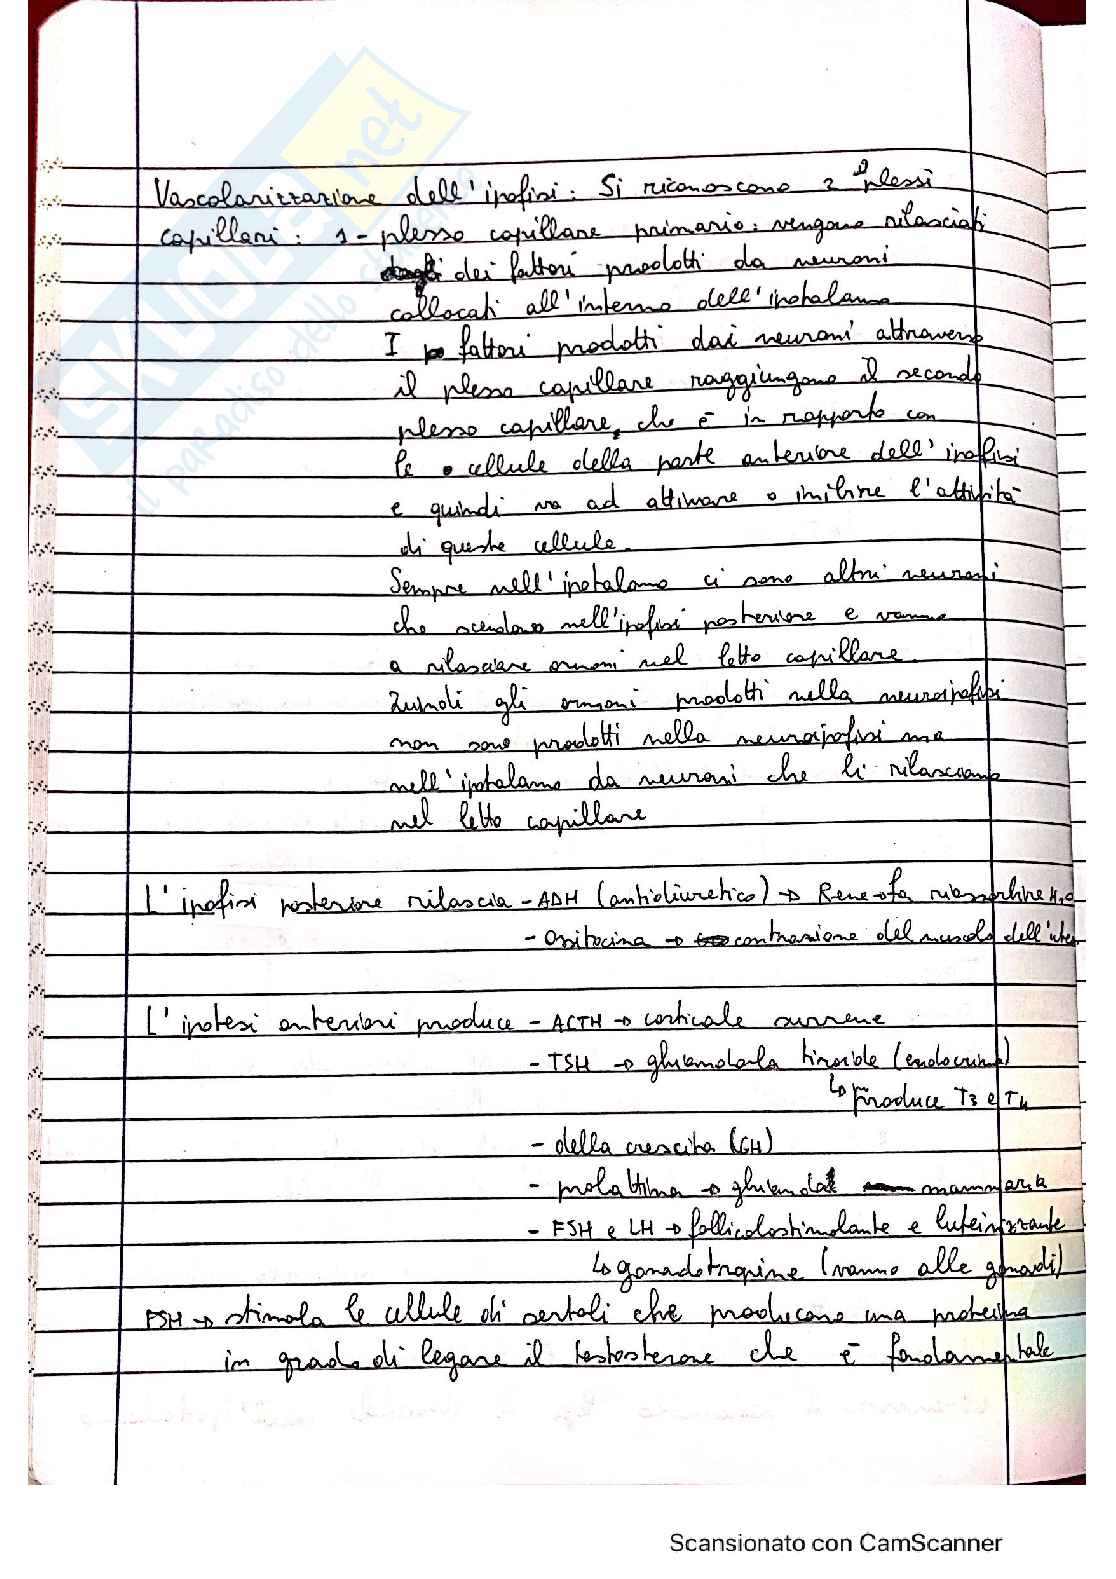 Vascolarizzazione dell'ipofisi: Si riconoscono 2 plessi
capillari: 1- plesso capillare primario: vengono rilasciati
dei fattori prodotti da neuroni
collocati all'interno dell'ipotalamo
I fattori prodotti dai neuroni attraverso
il plesso capillare raggiungono il secondo
plesso capillare, che è in rapporto con
le cellule della parte anteriore dell'ipofisi
e quindi va ad attivare o inibire l'attività
di queste cellule.
Sempre nell'ipotalamo ci sono altri neuroni
che scendono nell'ipofisi posteriore e vanno
a rilasciare ormoni nel letto capillare.
Quindi gli ormoni prodotti nella neuroipofisi
non sono prodotti nella neuroipofisi ma
nell'ipotalamo da neuroni che li rilasciano
nel letto capillare
L'ipofisi posteriore rilascia - ADH (antidiuretico) → Rene → fa riassorbire H2O
- Ossitocina → contrazione del muscolo dell'utero
L'ipotesi anteriori produce - ACTH → corticale surrene
- TSH → ghiandola tiroide (endocrina)
↳ produce T3 e T4
- della crescita (GH)
- prolattina → ghiandola mammaria
- FSH e LH → follicolostimolante e luteinizzante
↳ gonadotropine (vanno alle gonadi)
FSH → stimola le cellule di sertoli che producono una proteina
in grado di legare il testosterone che è fondamentale
SKUOLA.net
il paradiso dello studente
Scansionato con CamScanner